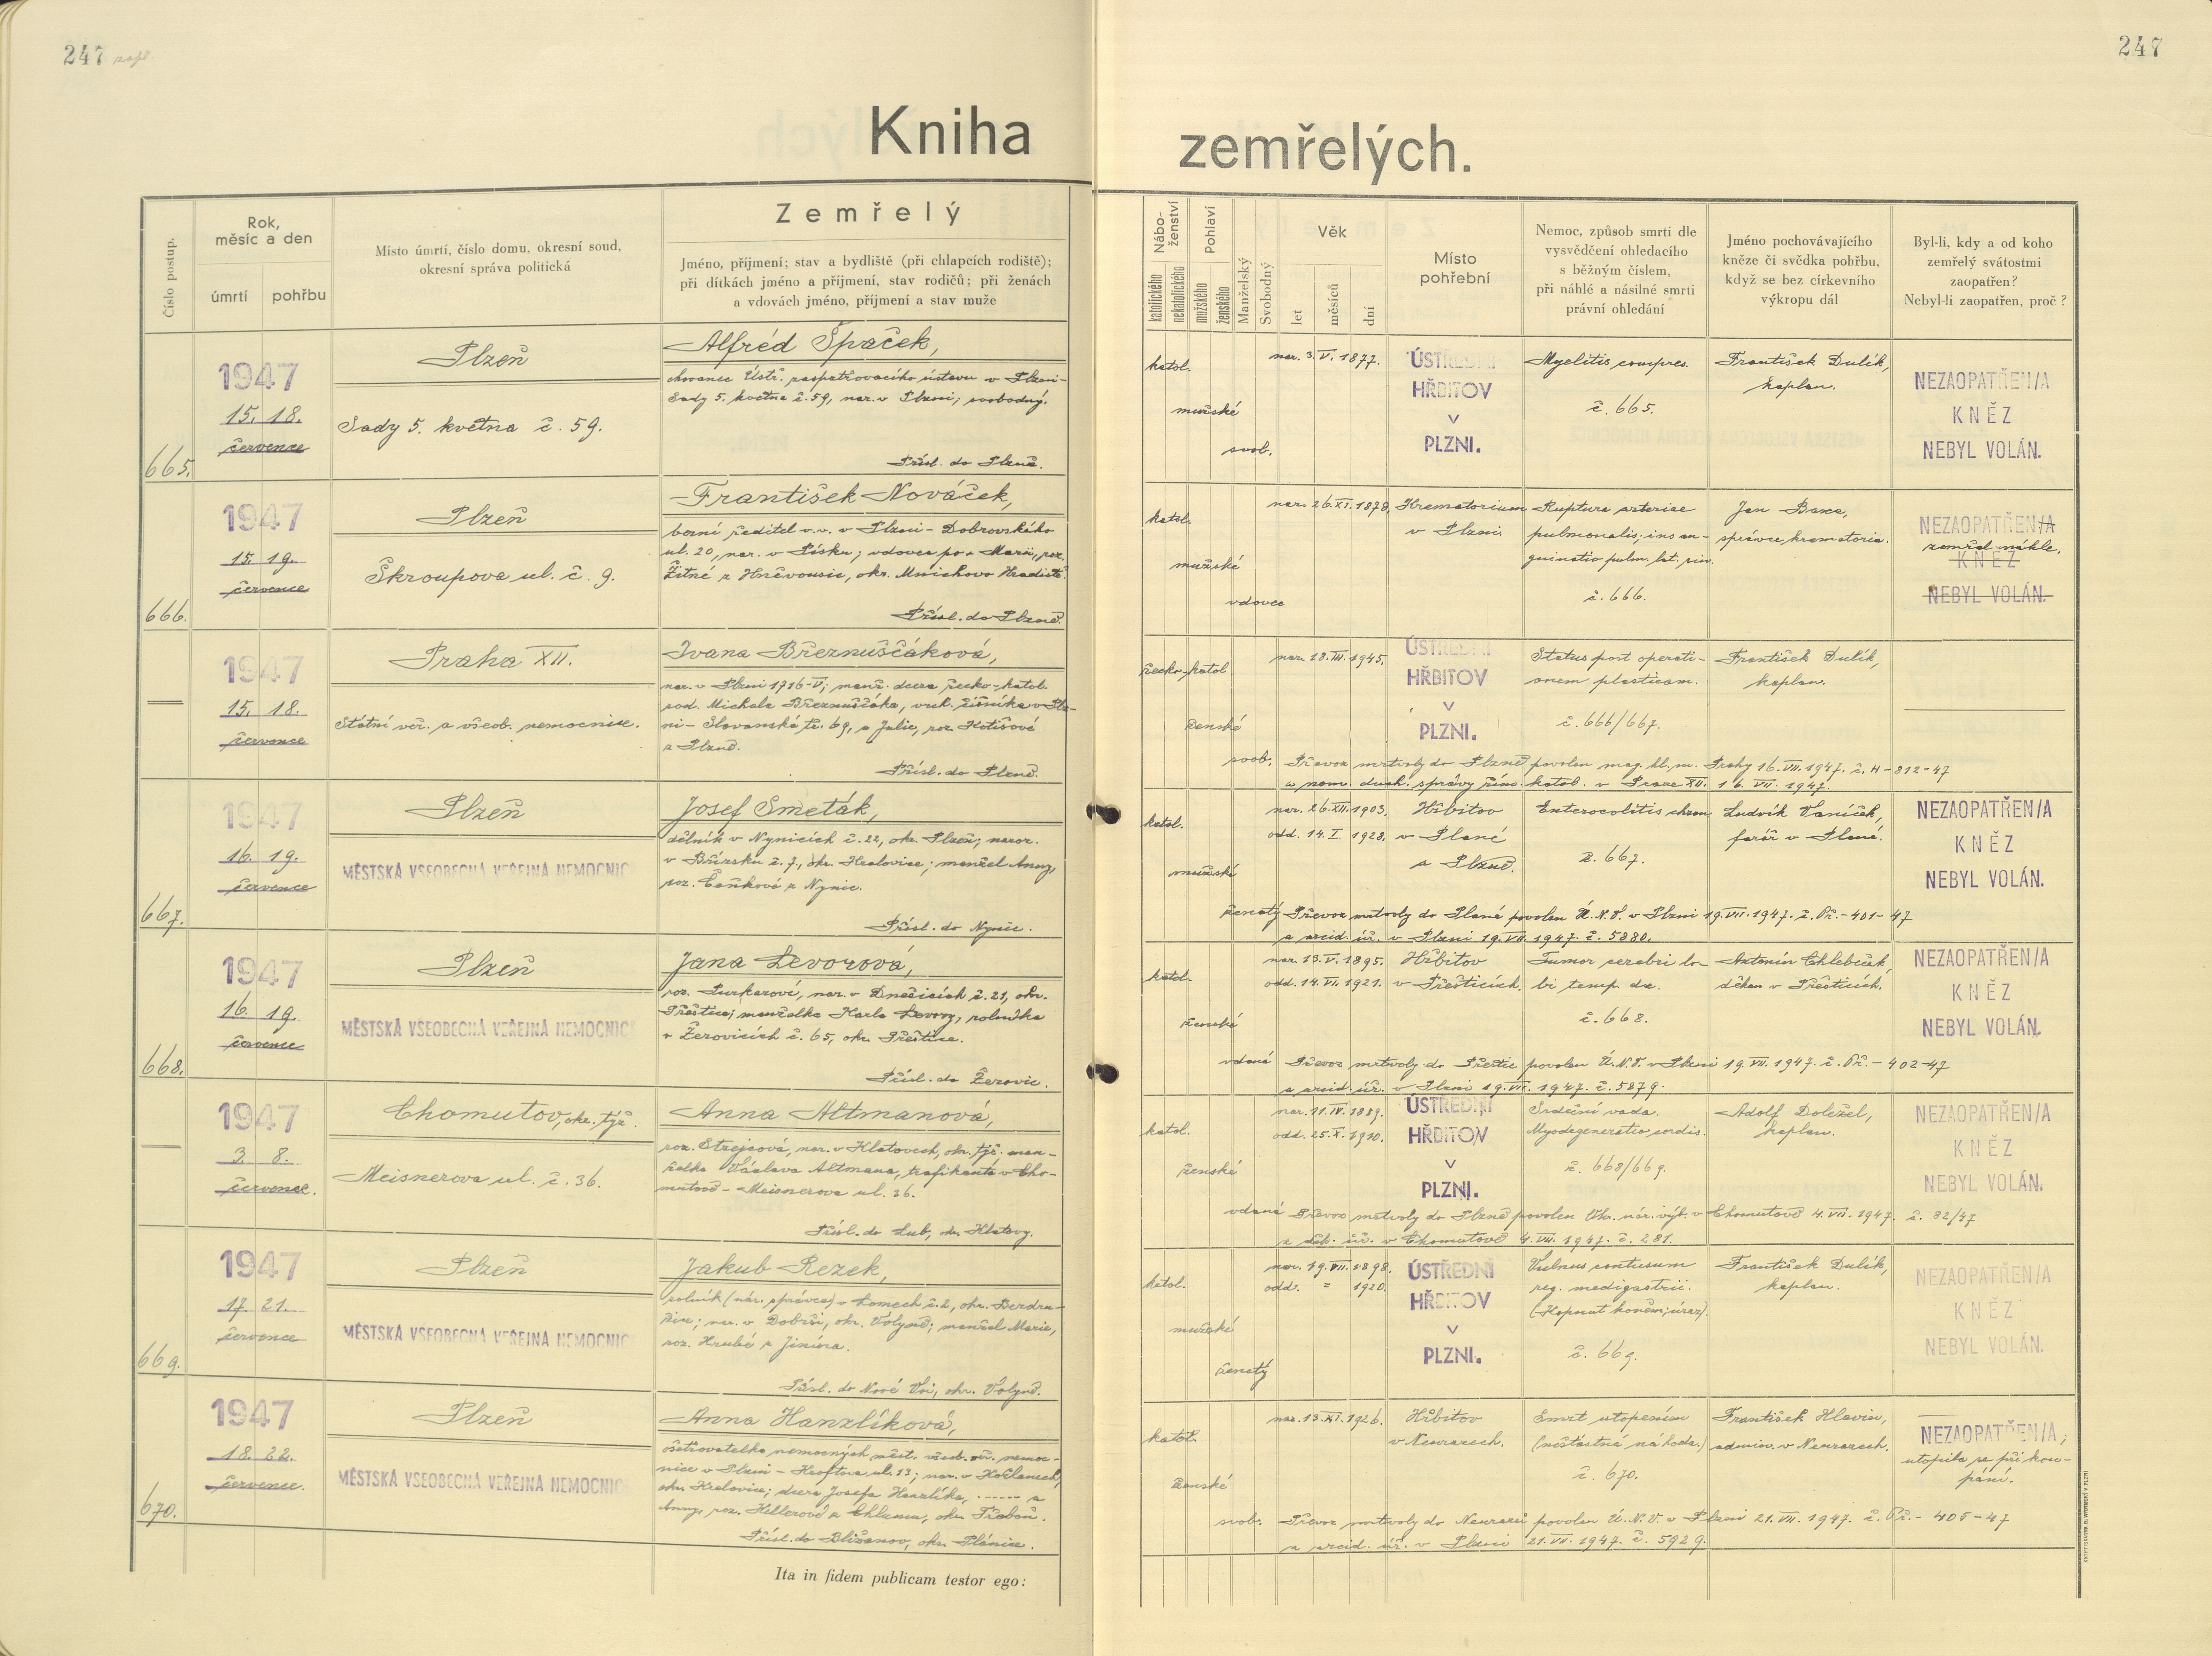 247
247
Kniha zemřelých.
Číslo postup.
Rok, měsíc a den
úmrtí
pohřbu
Místo úmrtí, číslo domu, okresní soud,
okresní správa politická
Zemřelý
Jméno, příjmení; stav a bydliště (při chlapcích rodiště);
při dítkách jméno a příjmení, stav rodičů; při ženách
a vdovách jméno, příjmení a stav muže
Nábo-
ženství
katolického
nekatolického
Pohlaví
mužského
ženského
Manželský
Svobodný
Věk
let
měsíců
dní
Místo
pohřební
Nemoc, způsob smrti dle
vysvědčení ohledacího
s běžným číslem,
při náhlé a násilné smrti
právní ohledání
Jméno pochovávajícího
kněze či svědka pohřbu,
když se bez církevního
výkropu dál
Byl-li, kdy a od koho
zemřelý svátostmi
zaopatřen?
Nebyl-li zaopatřen, proč?
665.
1947
15. 18.
července
Plzeň
Sady 5. května č. 59.
Alfréd Špaček,
chovanec Ústř. zaopatřovacího ústavu v Plzni-
Sady 5. května č. 59, nar. v Plzni; svobodný.
Přísl. do Plzně.
katol.
mužské
svob.
nar. 3. V. 1877.
ÚSTŘEDNÍ
HŘBITOV
V
PLZNI.
Myelitis compres.
č. 665.
František Dulík,
kaplan.
NEZAOPATŘEN/A
KNĚZ
NEBYL VOLÁN.
666.
1947
15. 19.
července
Plzeň
Škroupova ul. č. 9.
František Nováček,
berní ředitel v.v. v Plzni - Dobrovského
ul. 20, nar. v Písku; vdovec po + Marii, roz.
Žitné z Hněvousic, okr. Mnichovo Hradiště.
Přísl. do Plzně.
katol.
mužské
vdovec
nar. 26. XI. 1879.
Krematorium
v Plzni.
Ruptura arteriae
pulmonalis;
č. 666.
Jan Baxa,
správce krematoria.
NEZAOPATŘEN/A
zemřel náhle.
KNĚZ
NEBYL VOLÁN.
1947
15. 18.
července
Praha XII.
Státní veř. a všeob. nemocnice.
Ivana Březnuščáková,
nar. v Plzni 1716-V; manž. dcera řecko-katol.
rod. Michala Březnuščáka, vrch. číšníka v Plz-
ni - Slovanská tř. 69, a Julie, roz. Kotišové
z Plzně.
Přísl. do Plzně.
řecko-katol.
ženské
svob.
nar. 18. III. 1945.
ÚSTŘEDNÍ
HŘBITOV
V
PLZNI.
Status post operati-
onem plasticam.
č. 666/667.
František Dulík,
kaplan.
Převoz mrtvoly do Plzně povolen mag. hl. m. Prahy 16. VII. 1947. č. H-812-47
a nem. duch. správy řím. katol. v Praze XII. 16. VII. 1947.
667.
1947
16. 19.
července
Plzeň
MĚSTSKÁ VŠEOBECNÁ VEŘEJNÁ NEMOCNIC
Josef Smeták,
dělník v Nynicích č. 22, okr. Plzeň; naroz.
v Břízsku č. 7, okr. Kralovice; manžel Anny,
roz. Čeňkové z Nynic.
Přísl. do Nynic.
katol.
mužské
ženatý
nar. 26. XII. 1903.
odd. 14. I. 1928.
Hřbitov
v Plané
u Plzně.
Enterocolitis chron.
č. 667.
Ludvík Vaníček,
farář v Plané.
NEZAOPATŘEN/A
KNĚZ
NEBYL VOLÁN.
Převoz mrtvoly do Plané povolen Ú.N.V. v Plzni 19. VII. 1947. č. Př.-401-47
a arcid. úř. v Plzni 19. VII. 1947. č. 5880.
668.
1947
16. 19.
července
Plzeň
MĚSTSKÁ VŠEOBECNÁ VEŘEJNÁ NEMOCNIC
Jana Levorová,
roz. Purkarové, nar. v Dnešicích č. 21, okr.
Přeštice; manželka Karla Levory, rolníka
v Žerovicích č. 65, okr. Přeštice.
Přísl. do Žerovic.
katol.
ženské
vdaná
nar. 13. V. 1895.
odd. 14. VI. 1921.
Hřbitov
v Přešticích.
Tumor cerebri lo-
bi temp. dx.
č. 668.
Antonín Chlebeček,
děkan v Přešticích.
NEZAOPATŘEN/A
KNĚZ
NEBYL VOLÁN.
Převoz mrtvoly do Přeštic povolen Ú.N.V. v Plzni 19. VII. 1947. č. Př.-402-47
a arcid. úř. v Plzni 19. VII. 1947. č. 5879.
1947
3. 8.
července.
Chomutov, okr. týž.
Meisnerova ul. č. 36.
Anna Altmanová,
roz. Strejcová, nar. v Klatovech, okr. týž. man-
želka Václava Altmana, trafikanta v Cho-
mutově - Meisnerova ul. 36.
Přísl. do Lub, okr. Klatovy.
katol.
ženské
vdaná
nar. 11. IV. 1889.
odd. 25. X. 1910.
ÚSTŘEDNÍ
HŘBITOV
V
PLZNI.
Srdeční vada.
Myodegeneratio cordis.
č. 668/669.
Adolf Doležel,
kaplan.
NEZAOPATŘEN/A
KNĚZ
NEBYL VOLÁN.
Převoz mrtvoly do Plzně povolen Ok. nár. výb. v Chomutově 4. VII. 1947. č. 82/47
a děk. úř. v Chomutově 4. VII. 1947. č. 281.
669.
1947
17. 21.
července
Plzeň
MĚSTSKÁ VŠEOBECNÁ VEŘEJNÁ NEMOCNIC
Jakub Rezek,
rolník (nár. správce) v Lomech č. 2, okr. Bezdru-
žice; nar. v Dobrši, okr. Volyně; manžel Marie,
roz. Hrubé z Jinína.
Přísl. do Nové Vsi, okr. Volyně.
katol.
mužské
ženatý
nar. 19. VII. 1898.
odd. = 1920.
ÚSTŘEDNÍ
HŘBITOV
V
PLZNI.
Vulnus contusum
reg. mesogastrii.
(Kopnut koněm; úraz).
č. 669.
František Dulík,
kaplan.
NEZAOPATŘEN/A
KNĚZ
NEBYL VOLÁN.
670.
1947
18. 22.
července.
Plzeň
MĚSTSKÁ VŠEOBECNÁ VEŘEJNÁ NEMOCNIC
Anna Hanzlíková,
ošetřovatelka nemocných měst. všeob. veř. nemoc-
nice v Plzni - Kroftova ul. 13; nar. v Kočlanech,
okr. Kralovice; dcera Josefa Hanzlíka, ------ a
Anny, roz. Hillerové z Chlumu, okr. Třeboň.
Přísl. do Bližanov, okr. Plánice.
katol.
ženské
svob.
nar. 13. XI. 1926.
Hřbitov
v Neurazech.
Smrt utopením
(nešťastná náhoda.)
č. 670.
František Hlavin,
admin. v Neurazech.
NEZAOPATŘEN/A;
utopila se při kou-
pání.
Převoz mrtvoly do Neuraz povolen Ú.N.V. v Plzni 21. VII. 1947. č. Př.-405-47
a arcid. úř. v Plzni 21. VII. 1947. č. 5929.
Ita in fidem publicam testor ego: